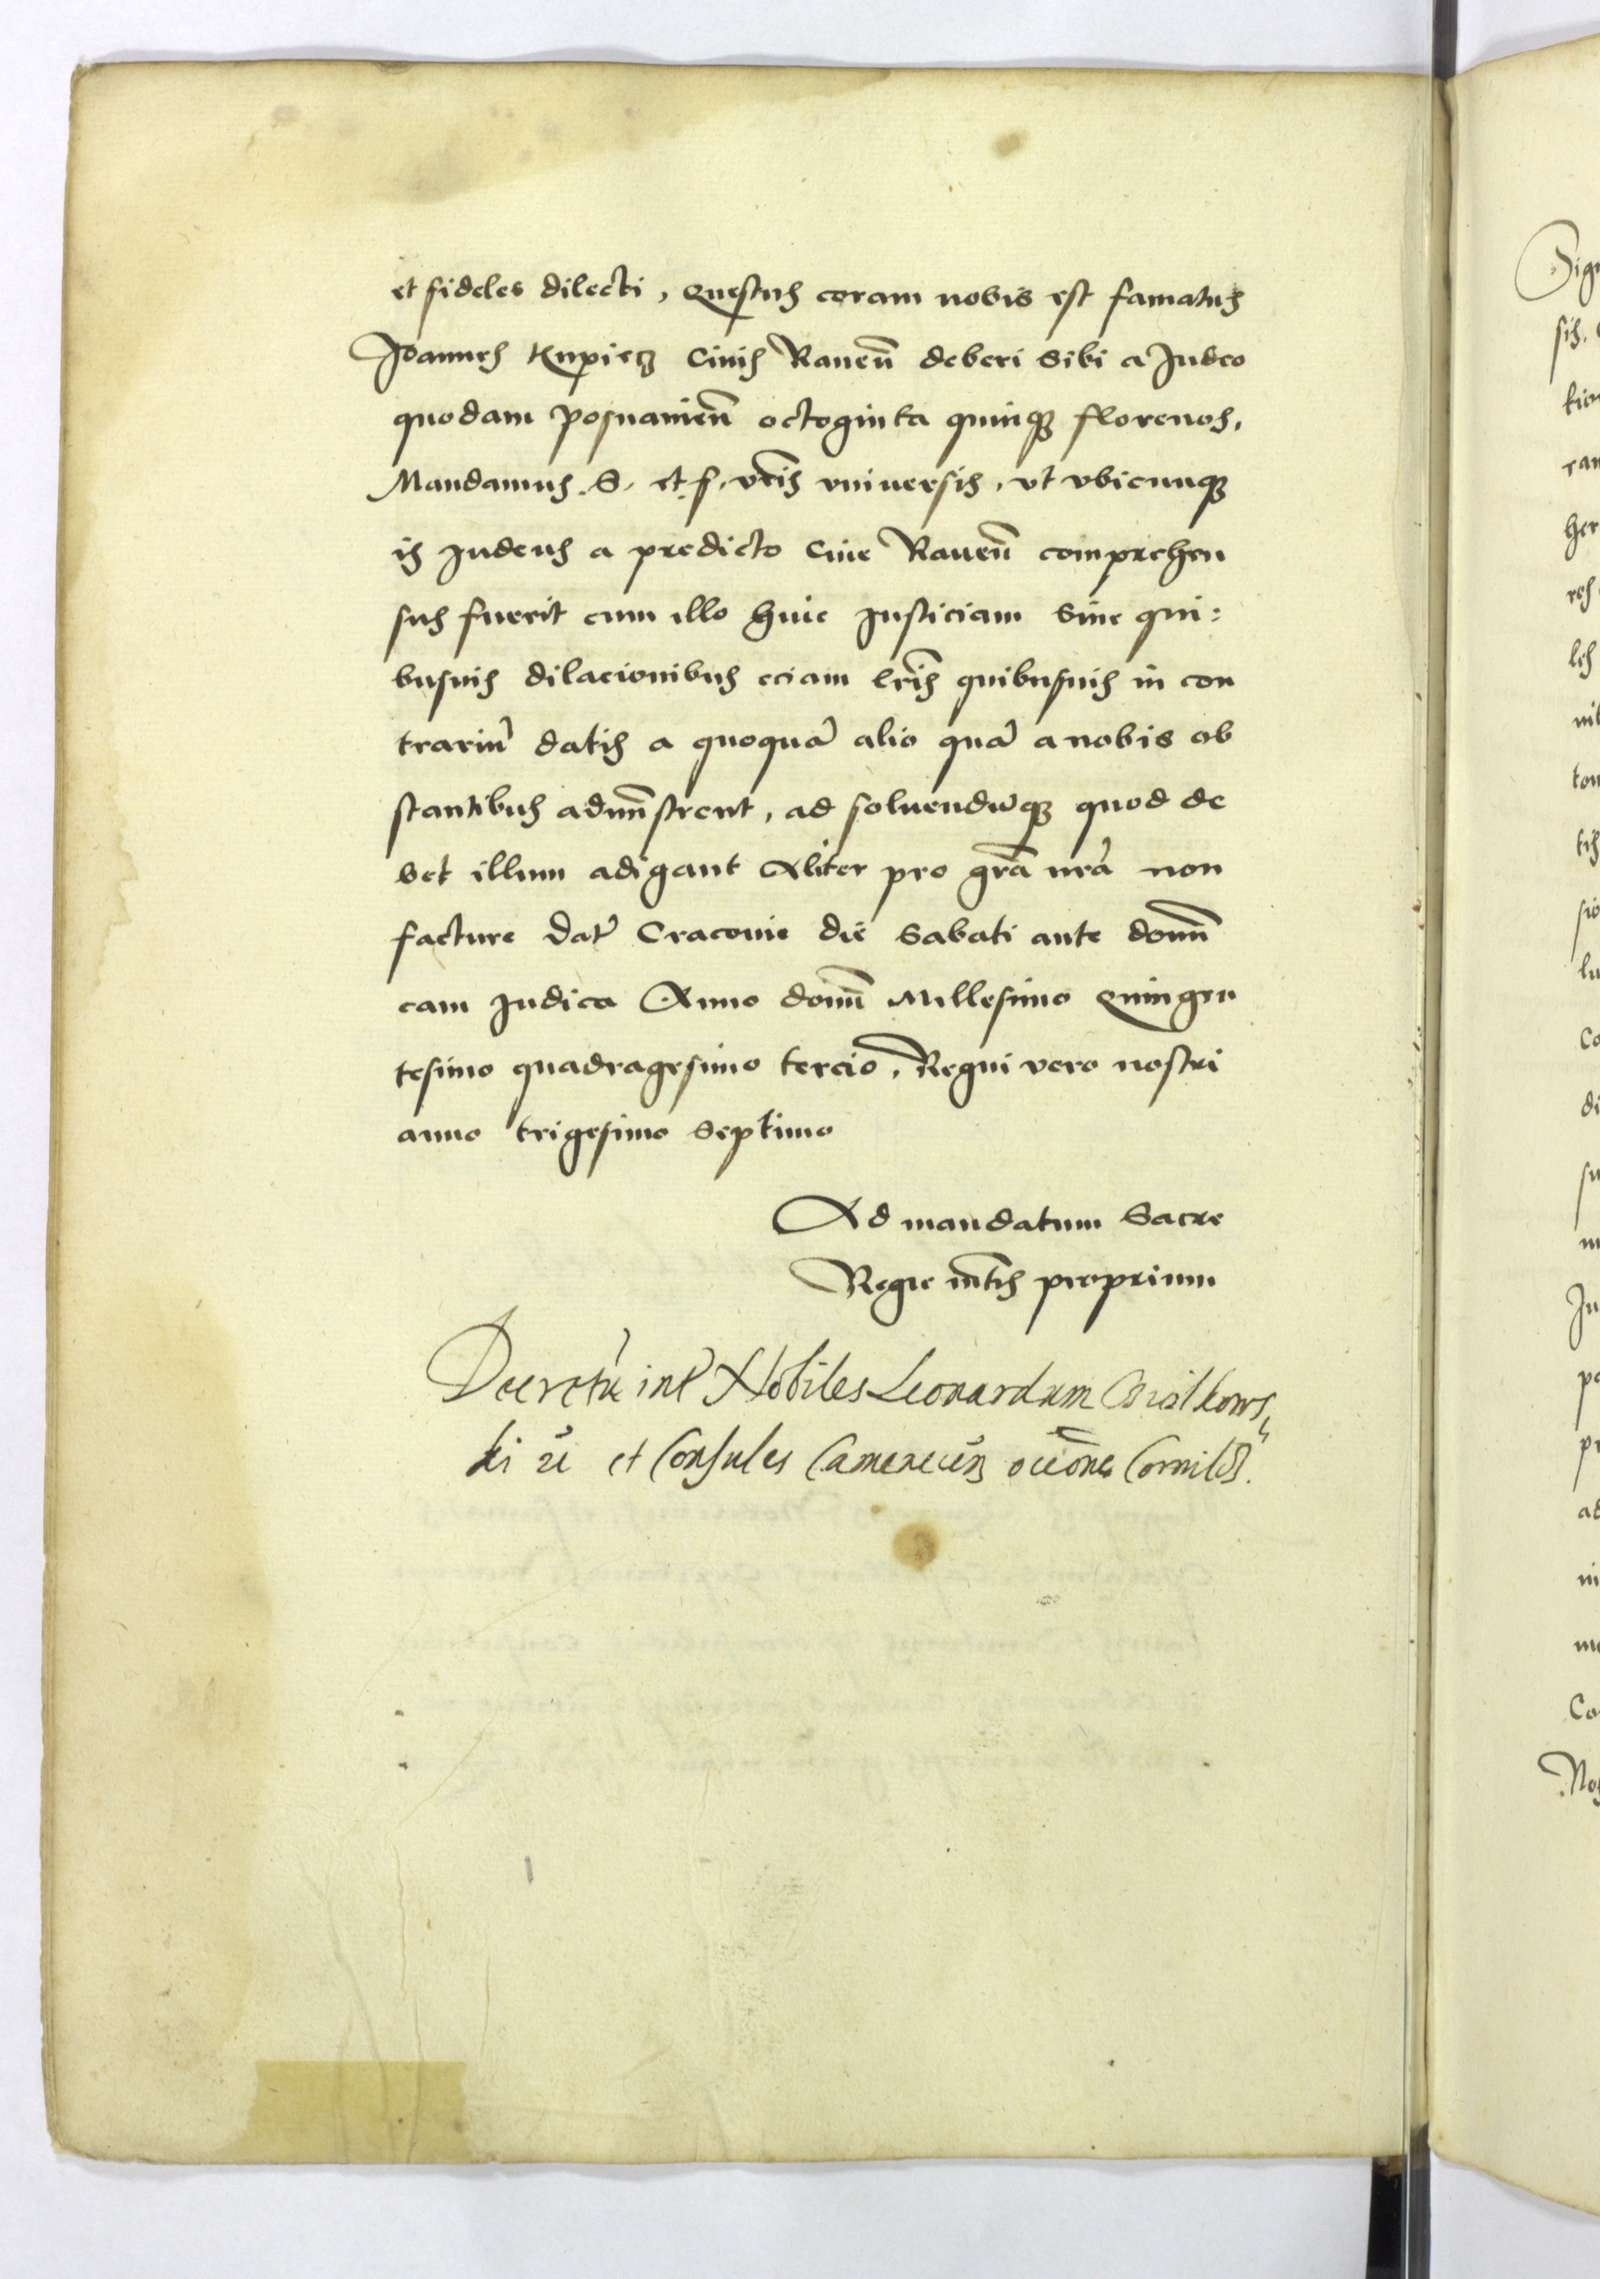 et fideles dilecti, Questus coram nobis est famatus
Joannes Kupiecz Civis Raveñ deberi sibi a Judeo
quodam posnanieñ octoginta quinqꝫ florenos,
Mandamus S. et f. vr̃is universis, vt vbicunqꝫ
is Judeus a predicto Cive Raveñ comprehen
sus fuerit cum illo huic Justiciam sine qui:
busvis dilacionibus eciam lr̃is quibusvis in con
trariũ datis a quoquã alio quã a nobis ob
stantibus admĩstrent, ad solvendũqꝫ quod de
bet illum adigant Aliter pro gr̃a nr̃a non
facture Dat̃ Cracovie die Sabati ante domĩ
cam Judica Anno domĩ Millesimo Quingen
tesimo quadragesimo tercio, Regni vero nostri
anno trigesimo septimo
Ad mandatum Sacre
Regie mt̃is proprium
Decretũ int̃ Nobiles Leonardum
ki et Consules
Sign
sis.